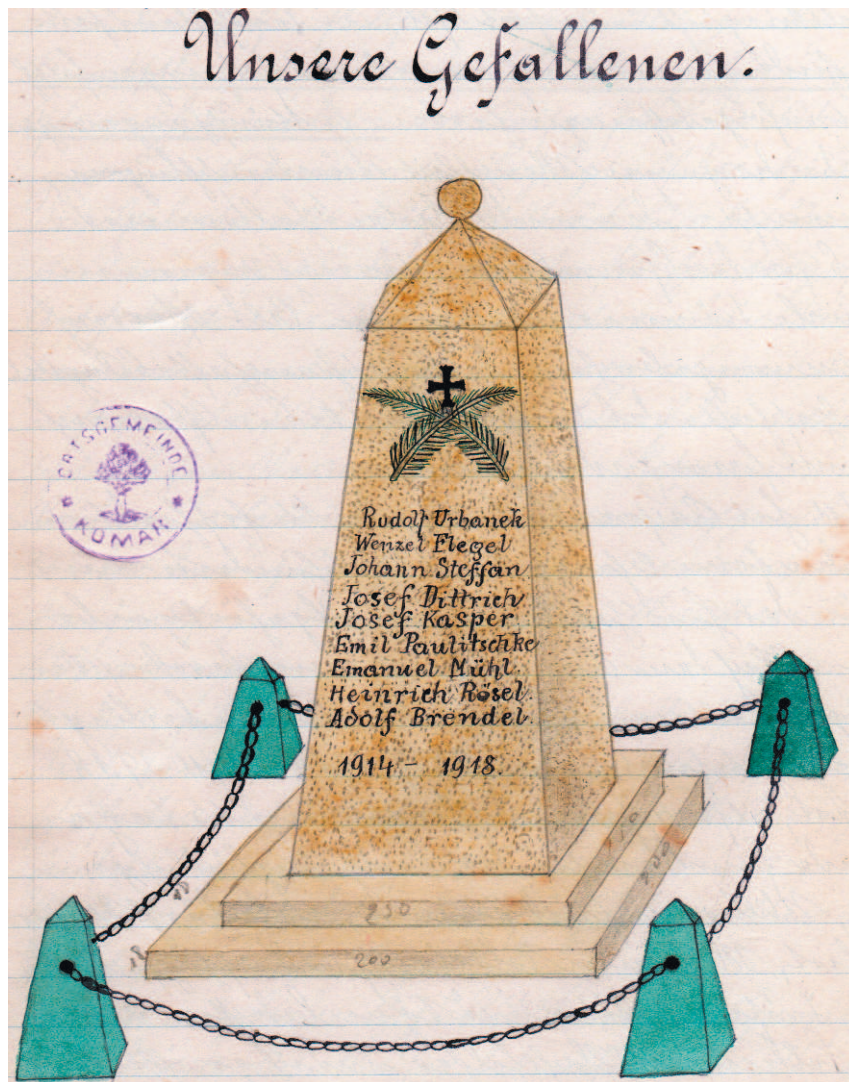 Unsere Gefallenen.
ORTSGEMEINDE
* KOMAR *
Rudolf Urbanek
Wenzel Flegel
Johann Steffan
Josef Dittrich
Josef Kasper
Emil Paulitschke
Emanuel Mühl.
Heinrich Rösel.
Adolf Brendel.
1914 - 1918.
250
200